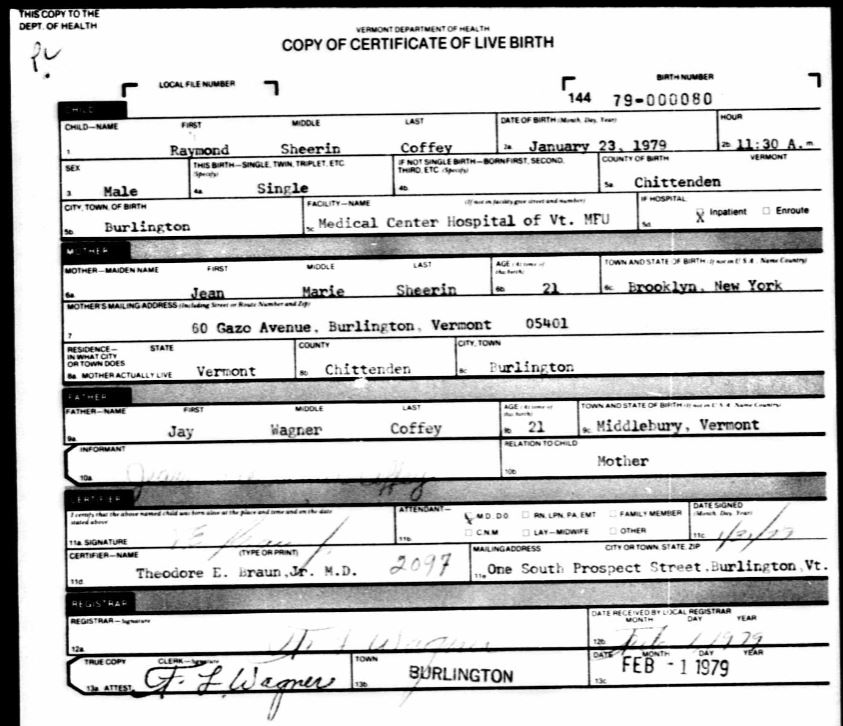 THIS COPY TO THE
DEPT. OF HEALTH
VERMONT DEPARTMENT OF HEALTH
COPY OF CERTIFICATE OF LIVE BIRTH
LOCAL FILE NUMBER
BIRTH NUMBER
144 79-000080
CHILD
CHILD—NAME FIRST MIDDLE LAST DATE OF BIRTH (Month, Day, Year) HOUR
1. Raymond Sheerin Coffey 2a. January 23, 1979 2b. 11:30 A.m.
SEX THIS BIRTH—SINGLE, TWIN, TRIPLET, ETC. (Specify) IF NOT SINGLE BIRTH—BORN FIRST, SECOND, THIRD, ETC. (Specify) COUNTY OF BIRTH VERMONT
3. Male 4a. Single 4b. 5a. Chittenden
CITY, TOWN, OF BIRTH FACILITY—NAME (If not in facility give street and number) IF HOSPITAL:
5b. Burlington 5c. Medical Center Hospital of Vt. MFU 5d. X Inpatient Enroute
MOTHER
MOTHER—MAIDEN NAME FIRST MIDDLE LAST AGE (At time of this birth) TOWN AND STATE OF BIRTH (If not in U.S.A. Name Country)
6a. Jean Marie Sheerin 6b. 21 6c. Brooklyn, New York
MOTHER'S MAILING ADDRESS (Including Street or Route Number and Zip)
7. 60 Gazo Avenue, Burlington, Vermont 05401
RESIDENCE— IN WHAT CITY OR TOWN DOES MOTHER ACTUALLY LIVE STATE COUNTY CITY, TOWN
8a. Vermont 8b. Chittenden 8c. Burlington
FATHER
FATHER—NAME FIRST MIDDLE LAST AGE (At time of this birth) TOWN AND STATE OF BIRTH (If not in U.S.A. Name Country)
9a. Jay Wagner Coffey 9b. 21 9c. Middlebury, Vermont
INFORMANT RELATION TO CHILD
10a. 10b. Mother
CERTIFIER
I certify that the above named child was born alive at the place and time and on the date stated above ATTENDANT— M.D., D.O. RN, LPN, PA, EMT FAMILY MEMBER DATE SIGNED (Month, Day, Year)
11a. SIGNATURE 11b. C.N.M LAY—MIDWIFE OTHER 11c.
CERTIFIER—NAME (TYPE OR PRINT) MAILING ADDRESS CITY OR TOWN, STATE, ZIP
11d. Theodore E. Braun, Jr. M.D. 2097 11e. One South Prospect Street, Burlington, Vt.
REGISTRAR
REGISTRAR—Signature DATE RECEIVED BY LOCAL REGISTRAR MONTH DAY YEAR
12a. Wagner 12b. Feb 1 1979
TRUE COPY CLERK—Signature TOWN DATE MONTH DAY YEAR
13a. ATTEST. F. L. Wagner 13b. BURLINGTON 13c. FEB - 1 1979